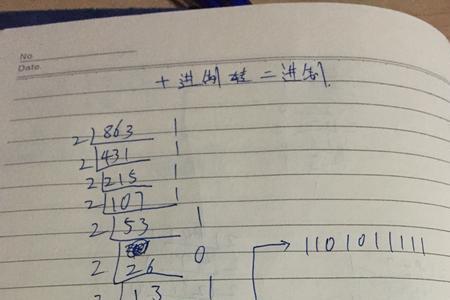 No.
Date.
十进制转二进制
2 863 1
2 431 1
2 215 1
2 107 1
2 53 1
2 26 0
13 1
1101011111